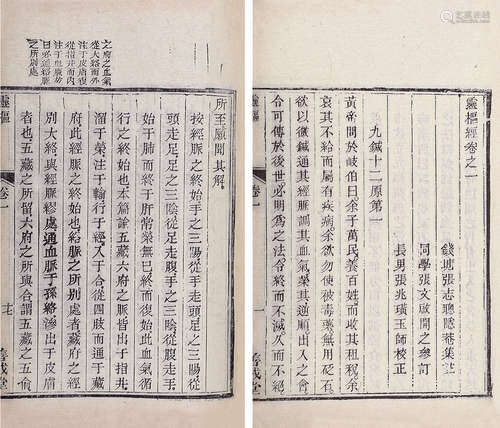 靈樞經卷之一
錢塘張志聰隱菴集註
同學張文啟開之參訂
長男張兆璜玉師校正
九鍼十二原第一
黃帝問於岐伯曰余子萬民養百姓而收其租稅余
哀其不給而屬有疾病余欲勿使被毒藥無用砭石
欲以微鍼通其經脈調其血氣榮其逆順出入之會
令可傳於後世必明為之法令終而不滅久而不絕
靈樞
卷一
一
善成堂
之府之血氣
從大絡而外
注于皮膚復
從指井而內
注于血脈
之所別處
所至願聞其解
按經脈之終始手之三陽從手走頭足之三陽從
頭走足足之三陰從足走腹手之三陰從腹走手
始于肺而終于肝常榮無已終而復始此血氣循
行之終始也本篇論五藏六府之脈皆出于指井
溜于榮注于輸行于經入于合從四肢而通于藏
府此經脈之終始也絡脈之所別處者藏府之經
別大絡與經脈繆處通血脈于孫絡滲出于皮膚
者也五藏之所留六府之所與合謂五藏之五俞
靈樞
卷一
善成堂